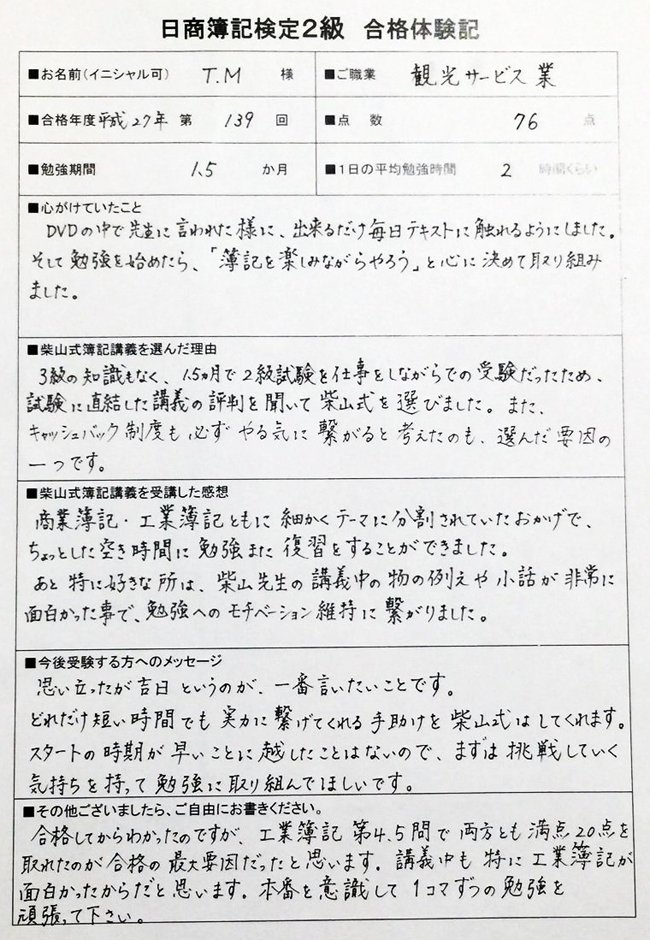 日商簿記検定2級 合格体験記
■お名前(イニシャル可) T.M 様 ■ご職業 観光サービス業
■合格年度 平成27年 第 139 回 ■点 数 76 点
■勉強期間 1.5 か月 ■1日の平均勉強時間 2 時間くらい
■心がけていたこと
DVDの中で先生に言われた様に、出来るだけ毎日テキストに触れるようにしました。
そして勉強を始めたら、「簿記を楽しみながらやろう」と心に決めて取り組み
ました。
■柴山式簿記講義を選んだ理由
3級の知識もなく、1.5ヵ月で2級試験を仕事をしながらでの受験だったため、
試験に直結した講義の評判を聞いて柴山式を選びました。また、
キャッシュバック制度も必ずやる気に繋がると考えたのも、選んだ要因の
一つです。
■柴山式簿記講義を受講した感想
商業簿記・工業簿記ともに細かくテーマに分割されていたおかげで、
ちょっとした空き時間に勉強また復習をすることができました。
あと特に好きな所は、柴山先生の講義中の物の例えや小話が非常に
面白かった事で、勉強へのモチベーション維持に繋がりました。
■今後受験する方へのメッセージ
思い立ったが吉日というのが、一番言いたいことです。
どれだけ短い時間でも実力に繋げてくれる手助けを柴山式はしてくれます。
スタートの時期が早いことに越したことはないので、まずは挑戦していく
気持ちを持って勉強に取り組んでほしいです。
■その他ございましたら、ご自由にお書きください。
合格してからわかったのですが、工業簿記 第4、5問で両方とも満点20点を
取れたのが合格の最大要因だったと思います。講義中も特に工業簿記が
面白かったからだと思います。本番を意識して1コマずつの勉強を
頑張って下さい。